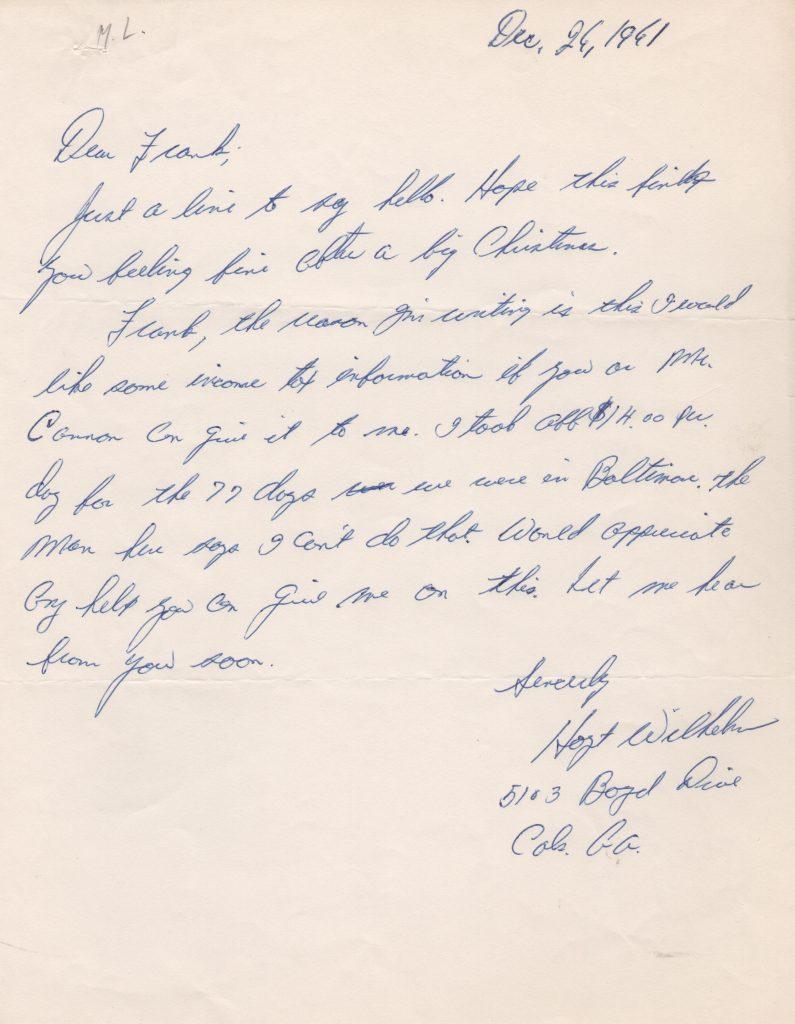 M. L.
Dec. 26, 1961
Dear Frank;
Just a line to say hello. Hope this finds
you feeling fine after a big Christmas.
Frank, the reason I'm writing is this I would
like some income tax information if you or Mr.
Cannon can give it to me. I took off $14.00 per.
day for the 77 days we were in Baltimore. The
man here says I can't do that. Would appreciate
any help you can give me on this. Let me hear
from you soon.
Sincerely
Hoyt Wilhelm
5103 Boyd Drive
Cols. GA.